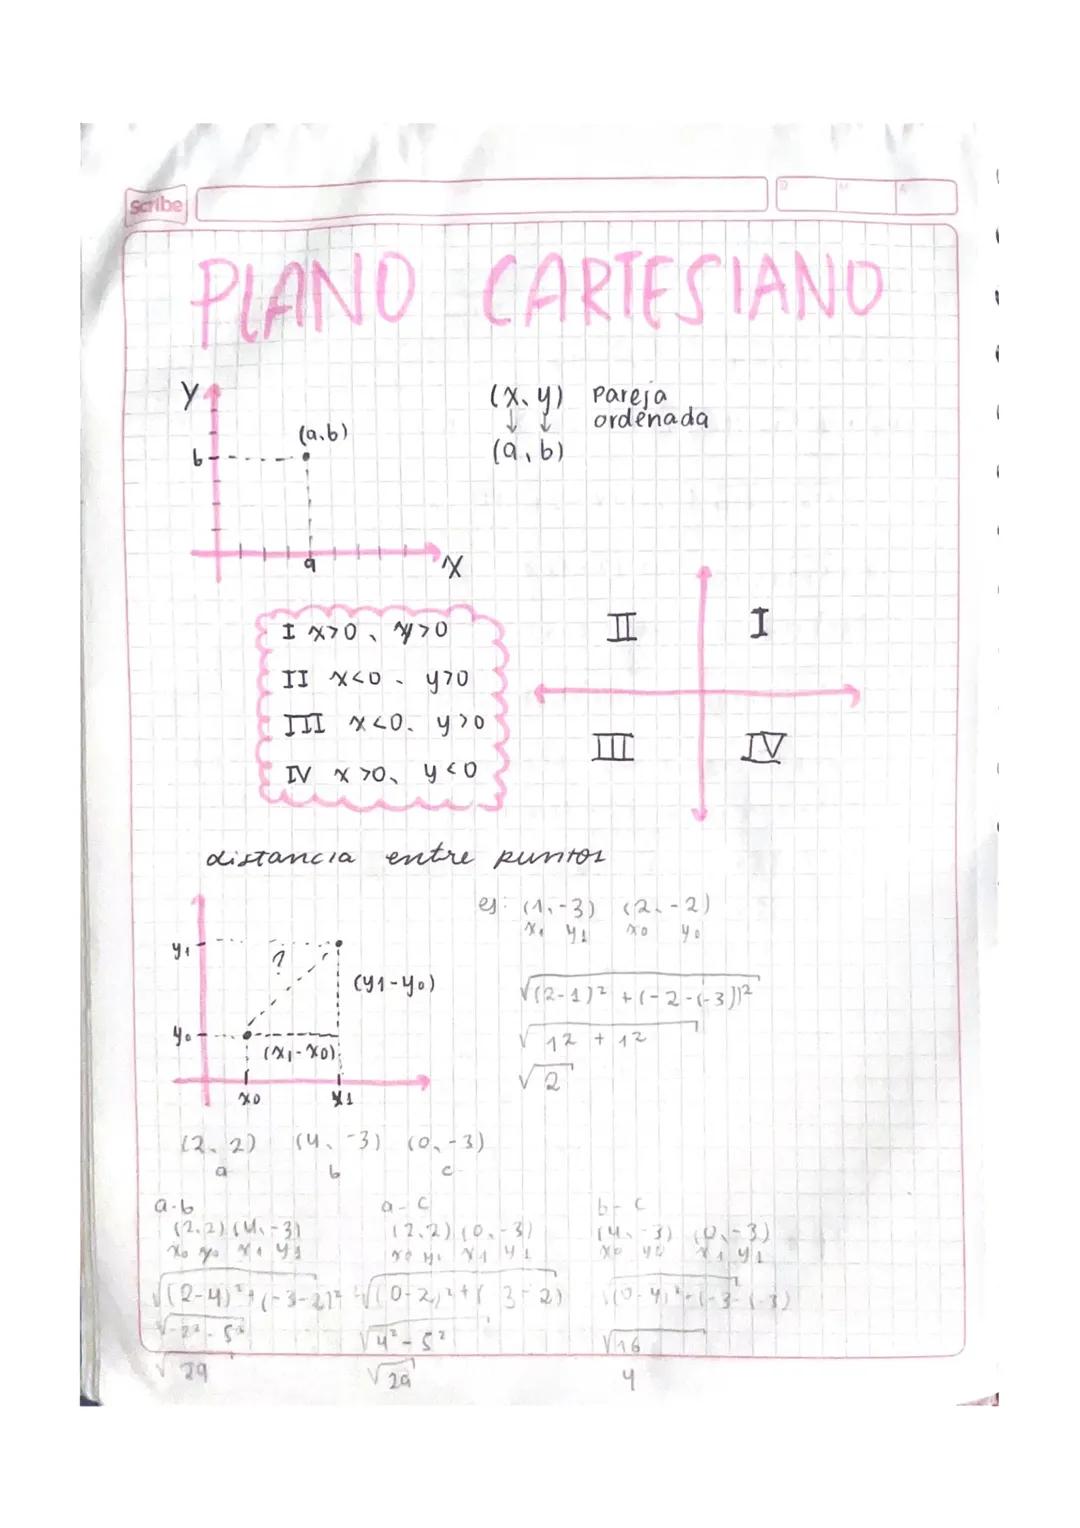 Scribe
D M A
PLANO CARTESIANO
Y
(a,b)
b
a
X
(x, y) Pareja
ordenada
(a, b)
I x>0, y>0
II x<0, y>0
III x<0, y>0
IV x>0, y<0
II I
III IV
distancia entre puntos
y1
?
(y1-y0)
y0
(x1-x0)
x0 x1
ej: (1,-3) (2,-2)
x1 y1 x0 y0
√(2-1)² + (-2-(-3))²
√1² + 1²
√2
(2, 2) (4, -3) (0, -3)
a b c
a-b
(2,2) (4,-3)
x0 y0 x1 y1
√(2-4)² + (-3-2)²
√-2² - 5²
√29
a-c
(2,2) (0,-3)
x0 y0 x1 y1
√(0-2)² + ( 3-2)
√4² - 5²
√29
b-c
(4, -3) (0,-3)
x0 y0 x1 y1
√(0-4)² + (-3-(-3)
√16
4